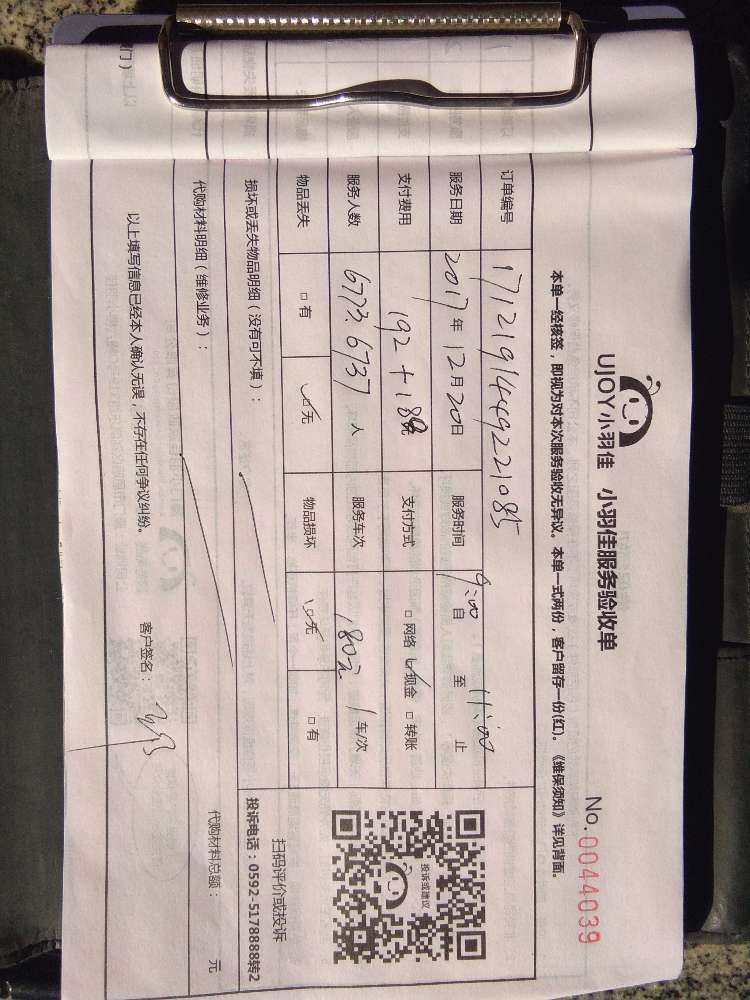 UJOY小羽佳 小羽佳服务验收单
No.0044039
本单一经核签，即视为对本次服务验收无异议。本单一式两份，客户留存一份(红)。《维保须知》详见背面。
订单编号 171219144922 1085
服务日期 2017年12月20日 服务时间 9:00 自 至 11:00 止
支付费用 192+18 支付方式 □网络 ☑现金 □转账
服务人数 6773.6737 人 服务车次 180元 1 车/次
物品丢失 □有 ☑无 物品损坏 ☑无 □有
投诉或建议
扫码评价或投诉
投诉电话：0592-5178888转2
损坏或丢失物品明细（没有可不填）：
代购材料明细（维修业务）： 代购材料总额： 元
以上填写信息已经本人确认无误，不存在任何争议纠纷。 客户签名：